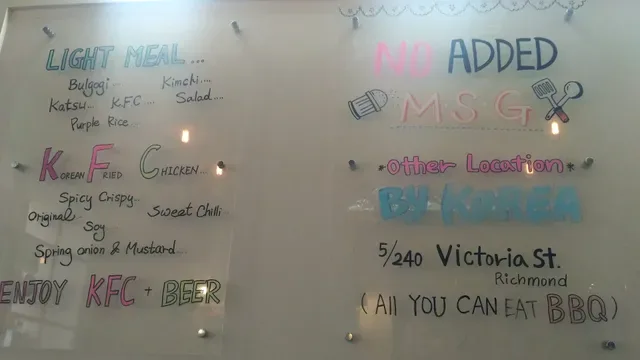 LIGHT MEAL...
Bulgogi... Kimchi....
Katsu... K.F.C.... Salad....
Purple Rice...
KOREAN FRIED CHICKEN...
Spicy Crispy...
Original... Sweet Chilli...
Soy
Spring onion & Mustard...
ENJOY KFC + BEER
NO ADDED
M.S.G
*Other Location*
BY KOREA
5/240 Victoria St.
Richmond
(All YOU CAN EAT BBQ)